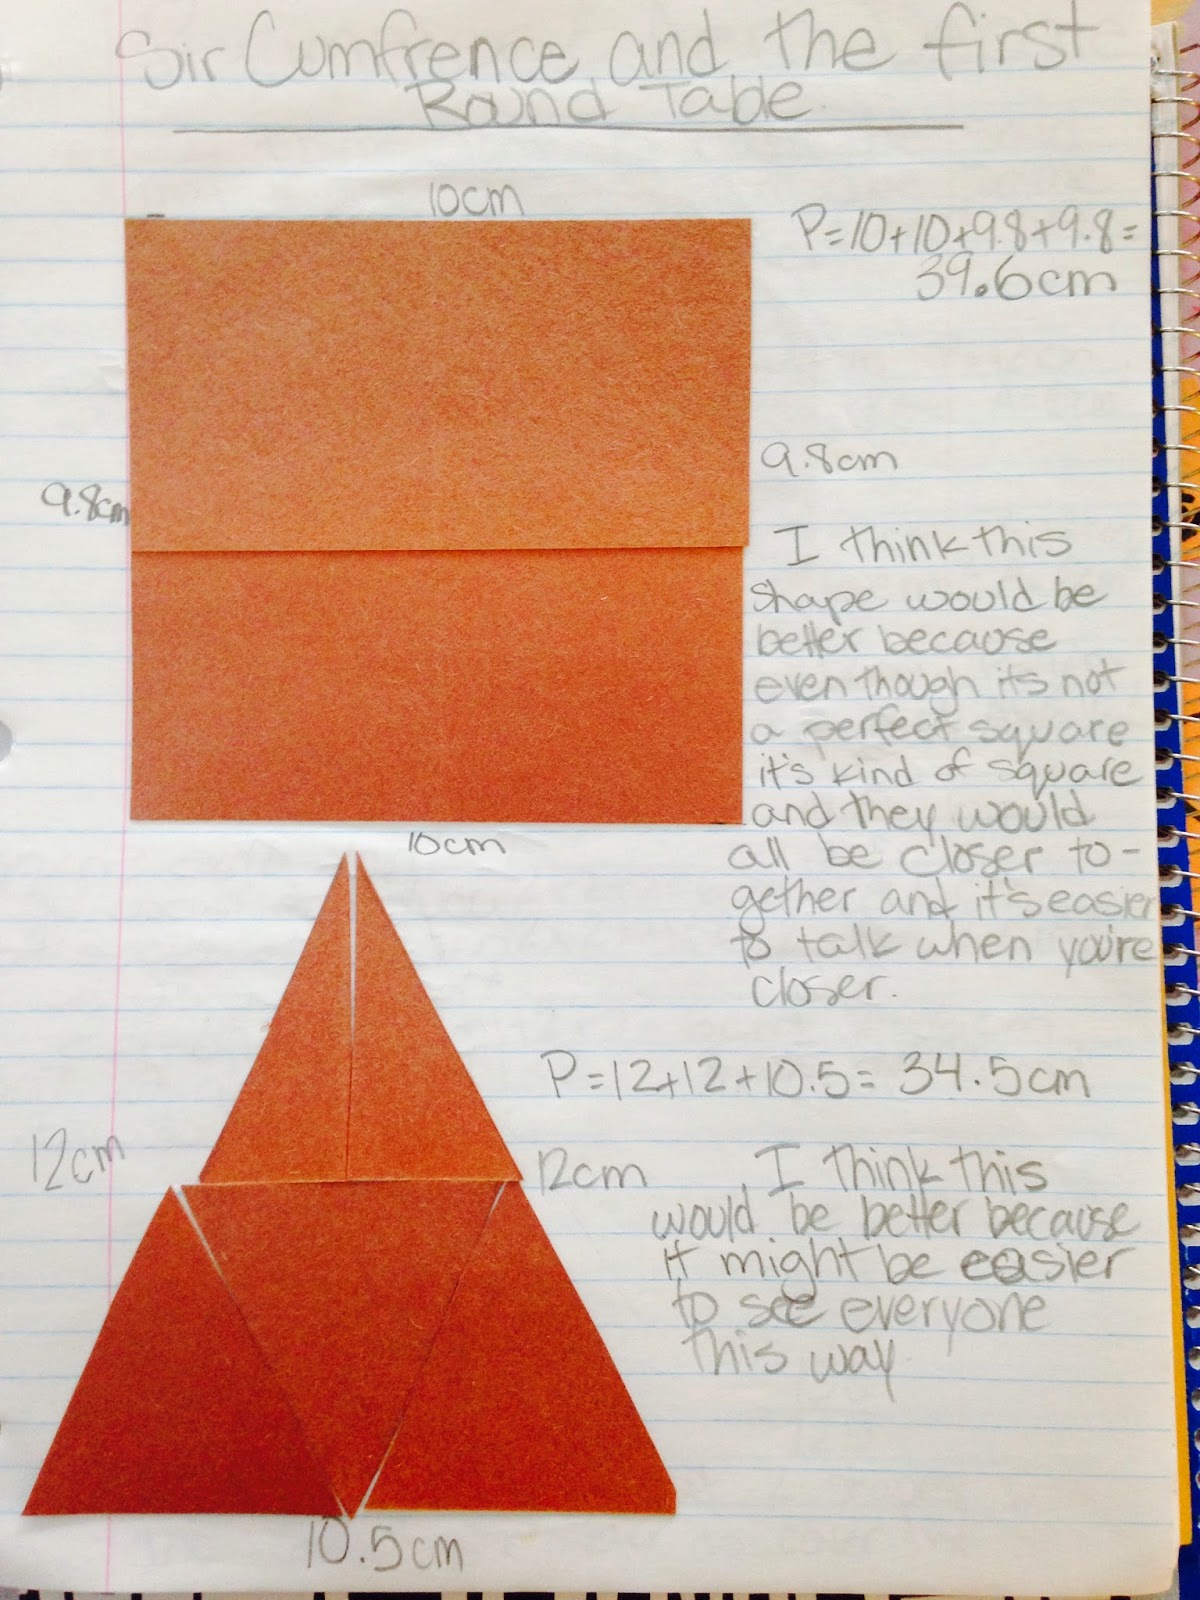 Sir Cumfrence and the first
Round Table
10cm
P=10+10+9.8+9.8=
39.6cm
9.8cm
9.8cm
I think this
shape would be
better because
even though its not
a perfect square
it's kind of square
and they would
all be closer to-
gether and it's easier
to talk when you're
closer.
10cm
P=12+12+10.5= 34.5cm
12cm
12cm
I think this
would be better because
it might be easier
to see everyone
this way
10.5cm